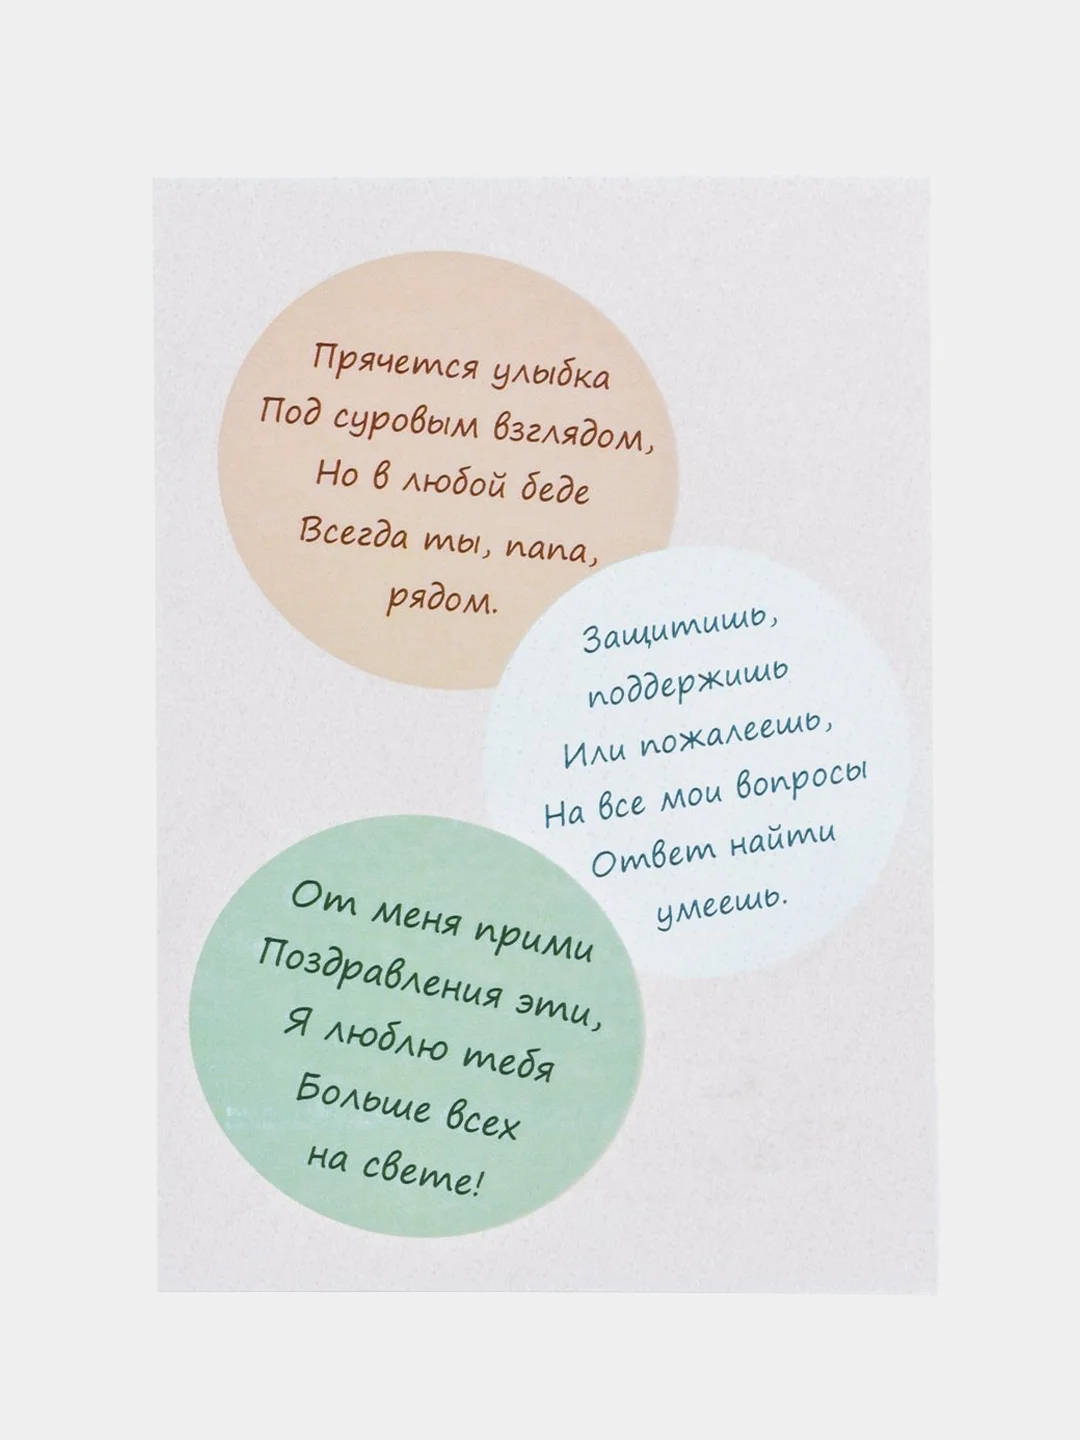 Прячется улыбка
Под суровым взглядом,
Но в любой беде
Всегда ты, папа,
рядом.
Защитишь,
поддержишь
Или пожалеешь,
На все мои вопросы
Ответ найти
умеешь.
От меня прими
Поздравления эти,
Я люблю тебя
Больше всех
на свете!